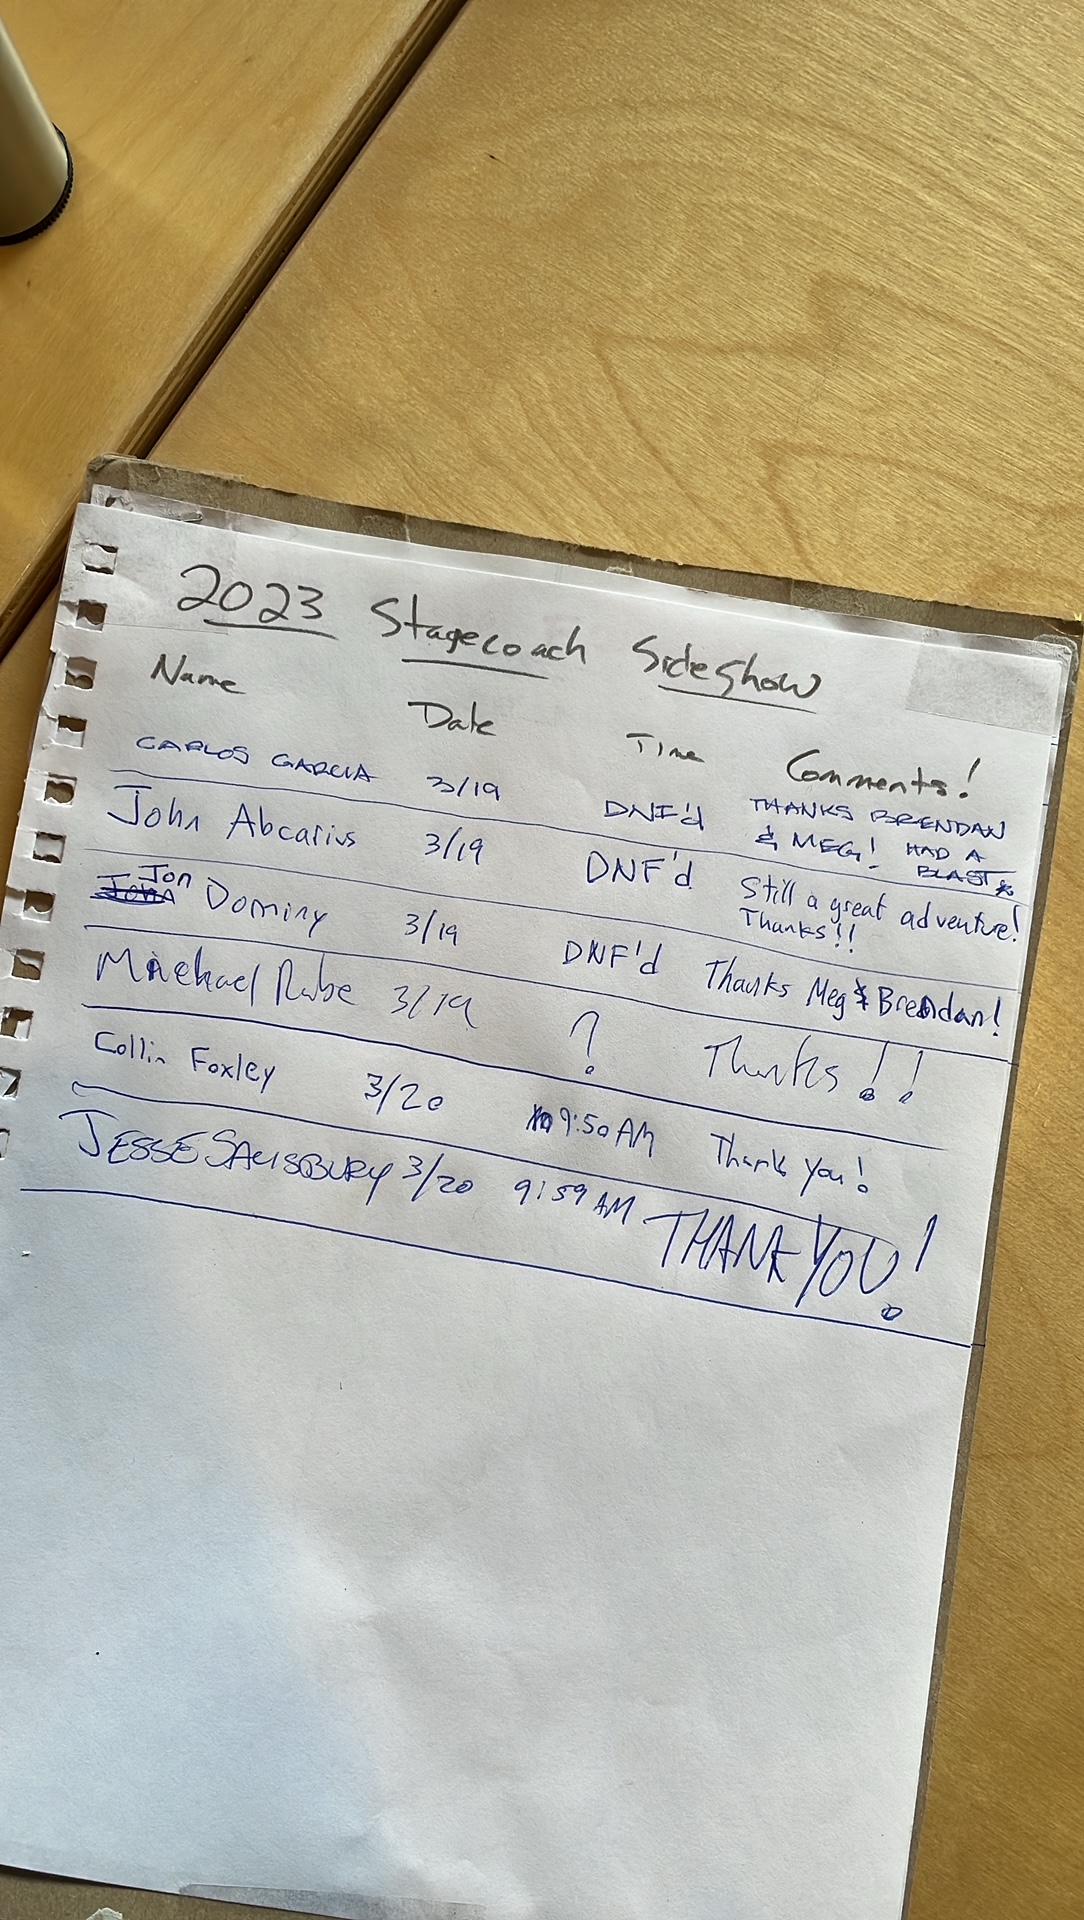 2023 Stagecoach Sideshow
Name Date Time Comments!
CARLOS GARCIA 3/19 DNF'd THANKS BRENDAN
& MEG! HAD A
BLAST
John Abcarius 3/19 DNF'd Still a great adventure!
Thanks!!
Jon Dominy 3/19 DNF'd Thanks Meg & Brendan!
Michael Rube 3/19 ? Thanks!!
Collin Foxley 3/20 9:50 AM Thank you!
JESSE SALISBURY 3/20 9:59 AM THANK YOU!